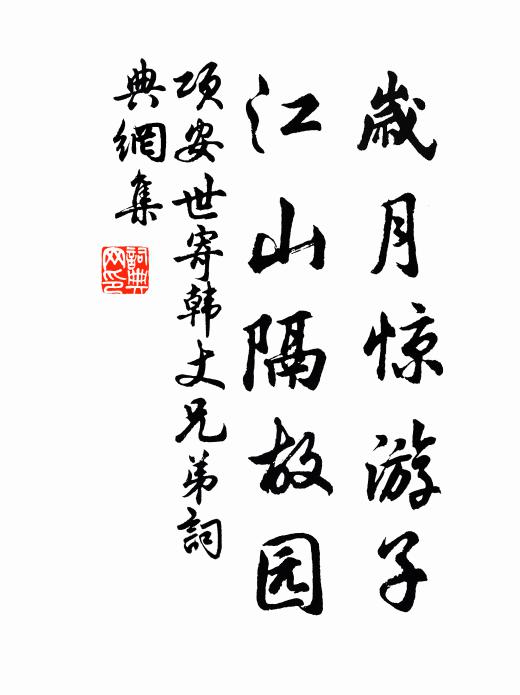 歲月惊游子
江山隔故园
项安世寄韩丈兄弟詞
典網集
詞典
网印